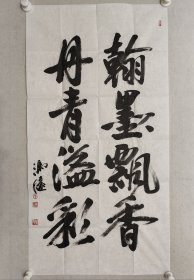 翰墨飘香
丹青溢彩